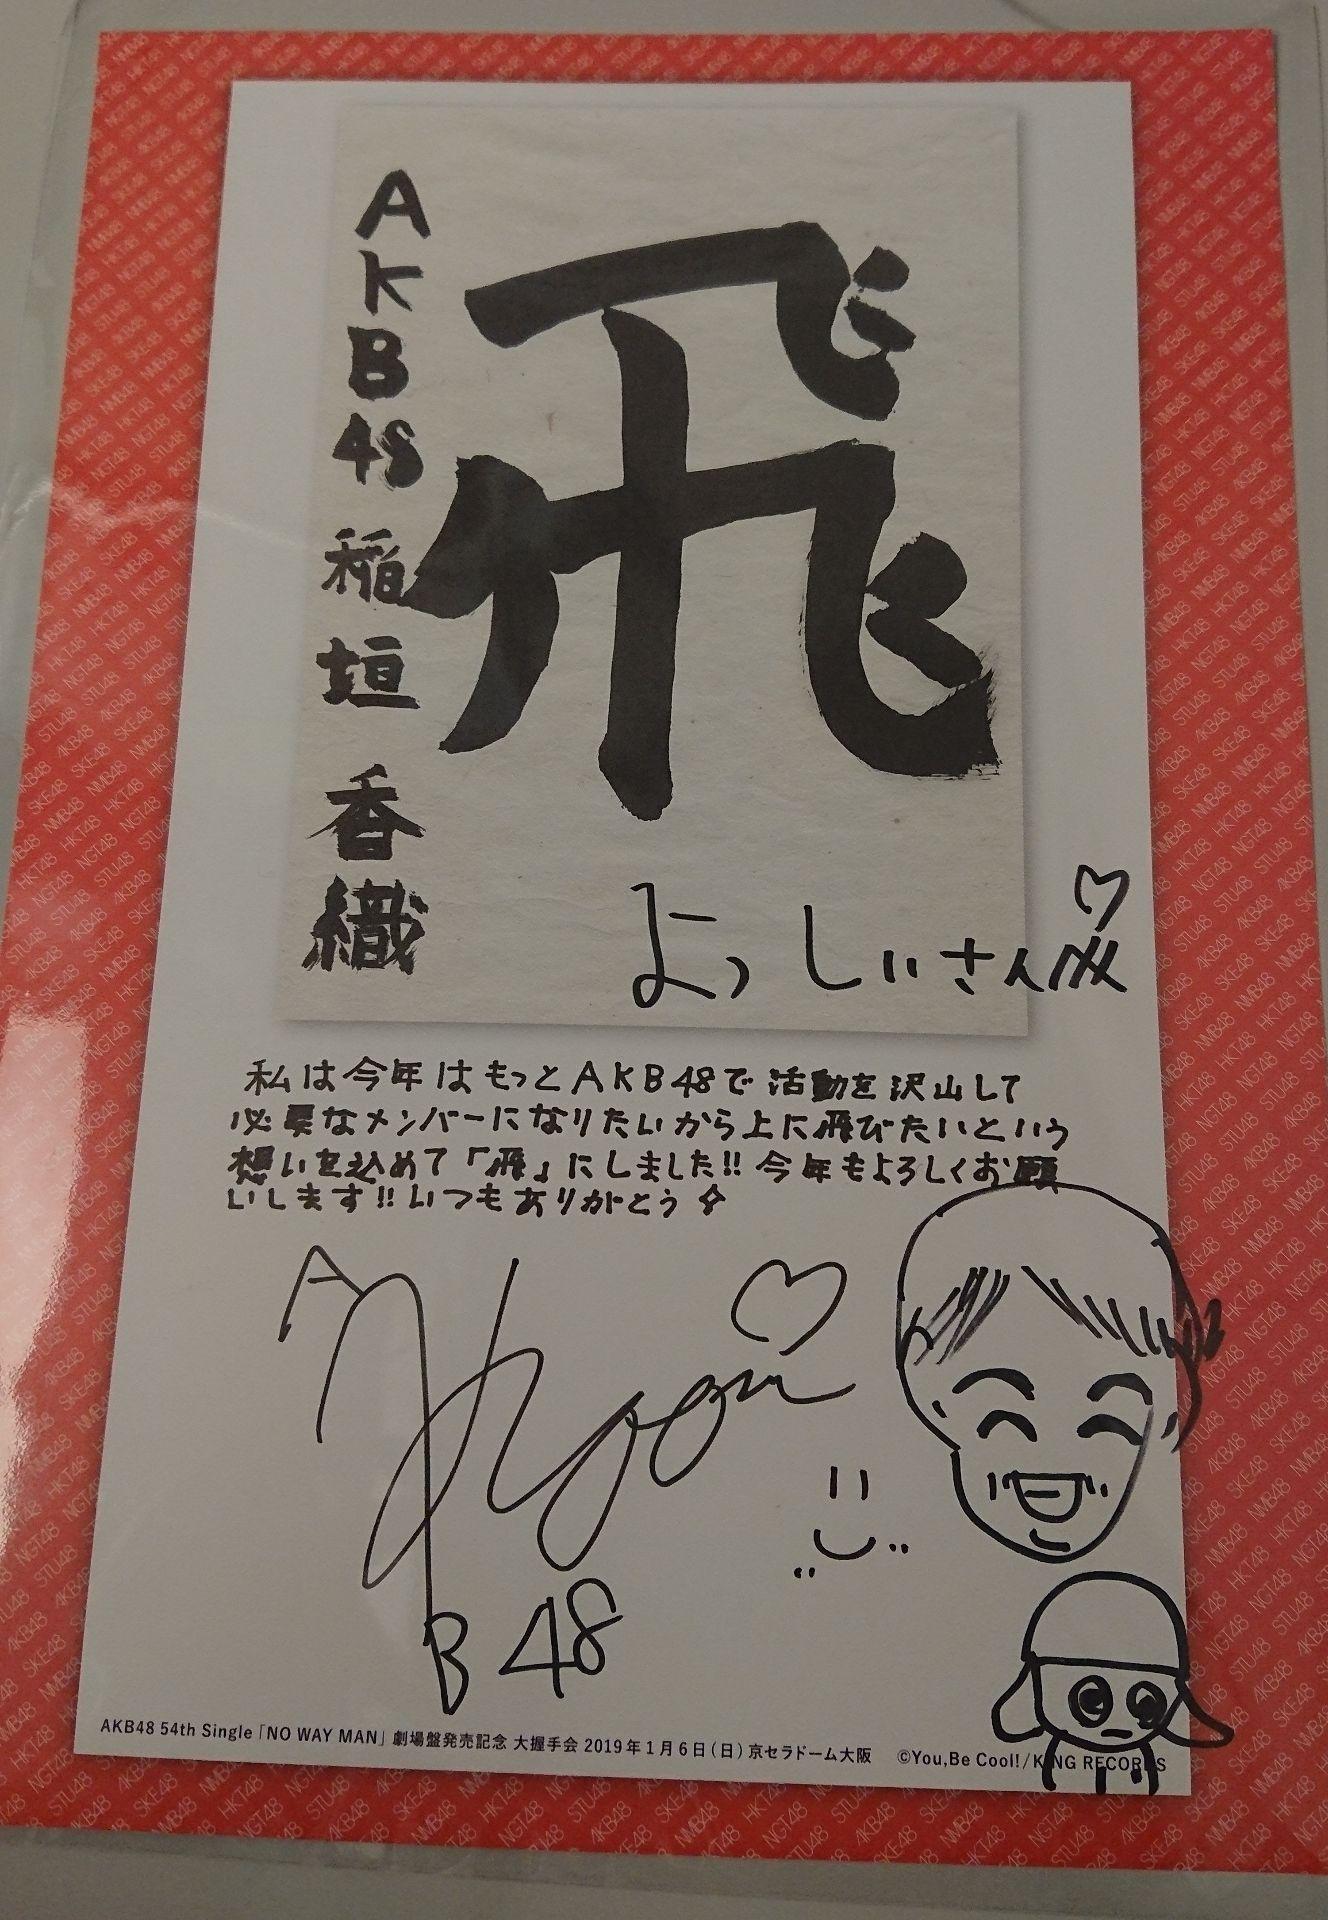 飛
AKB48 稲垣香織
よっしぃさん
私は今年はもっとAKB48で活動を沢山して
必要なメンバーになりたいから上に飛びたいという
想いを込めて「飛」にしました!! 今年もよろしくお願
いします!! いつもありがとう
AKB48
AKB48 54th Single「NO WAY MAN」劇場盤発売記念 大握手会 2019年1月6日(日)京セラドーム大阪 ©You,Be Cool!/KING RECORDS